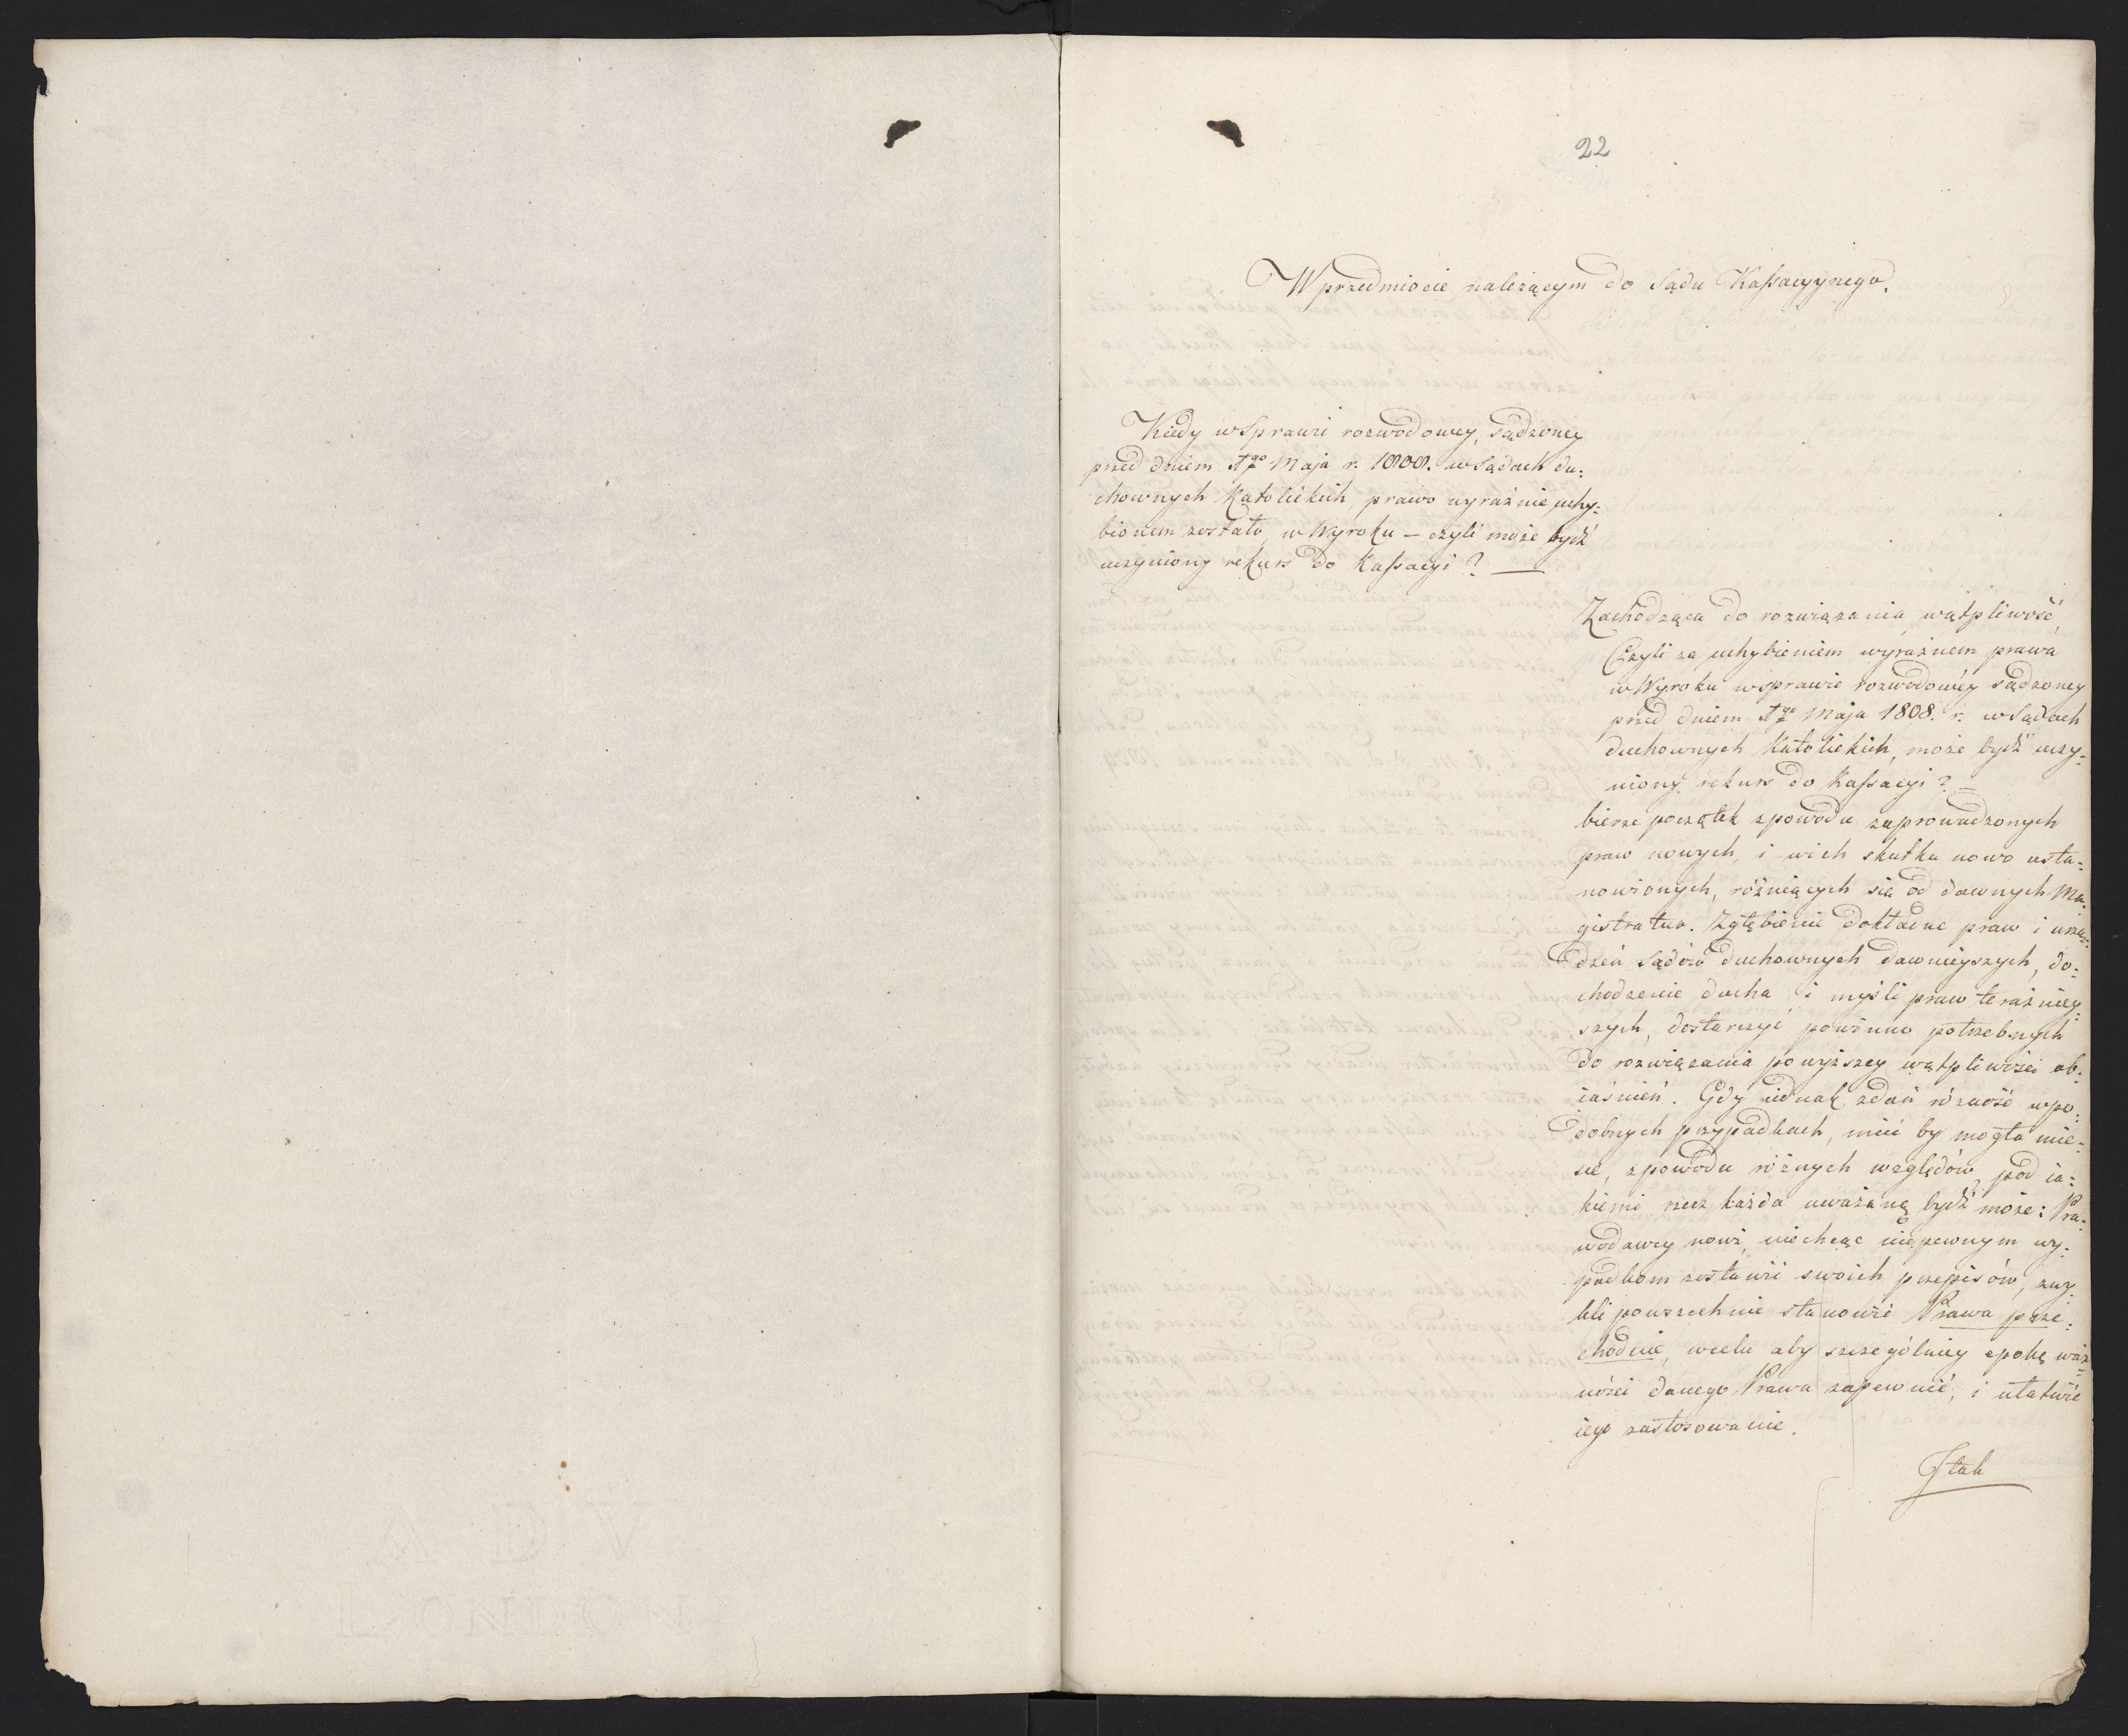 22
W przedmiocie należącym do Sądu Kassacyynego.
Kiedy w Sprawie rozwodowey, sądzoney
przed dniem 1go Maja r. 1808. w Sądach du:
chownych Katolickich, prawo wyraźnie uchy:
bionem zostało, w Wyroku – czyli może bydź
uczyniony rekurs do Kassacyi? —
Zachodząca do rozwiązania wątpliwość,
Czyli za uchybieniem wyraźnem prawa
w Wyroku w sprawie rozwodowéy sądzoney
przed dniem 1go Maja 1808. r. w Sądach
duchownych Katolickich, może bydź uczy:
niony rekurs do Kassacyi? –
bierze początek z powodu zaprowadzonych
praw nowych, i w ich skutku nowo usta:
nowionych, różniących się od dawnych Ma:
gistratur. Zgłębienie dokładne praw i urzą:
dzeń Sądów duchownych dawnieyszych, do:
chodzenie ducha i myśli praw teraźniey:
szych, dostarczyć powinno potrzebnych
do rozwiązania powyższey wątpliwości ob:
iaśnień. Gdy iednak zdań różność w po:
dobnych przypadkach, mieć by mogła miey:
sce, z powodu różnych względów, pod ia:
kiemi rzecz każda uważaną bydź może: Pra:
wodawcy nowi, niechcąc niepewnym wy:
padkom zostawić swoich przepisów, zwy:
kli powszechnie stanowić Prawa prze:
chodnie, w celu aby szczególniey epokę waż:
ności danego Prawa zapewnić, i ułatwić
iego zastosowanie.
I tak